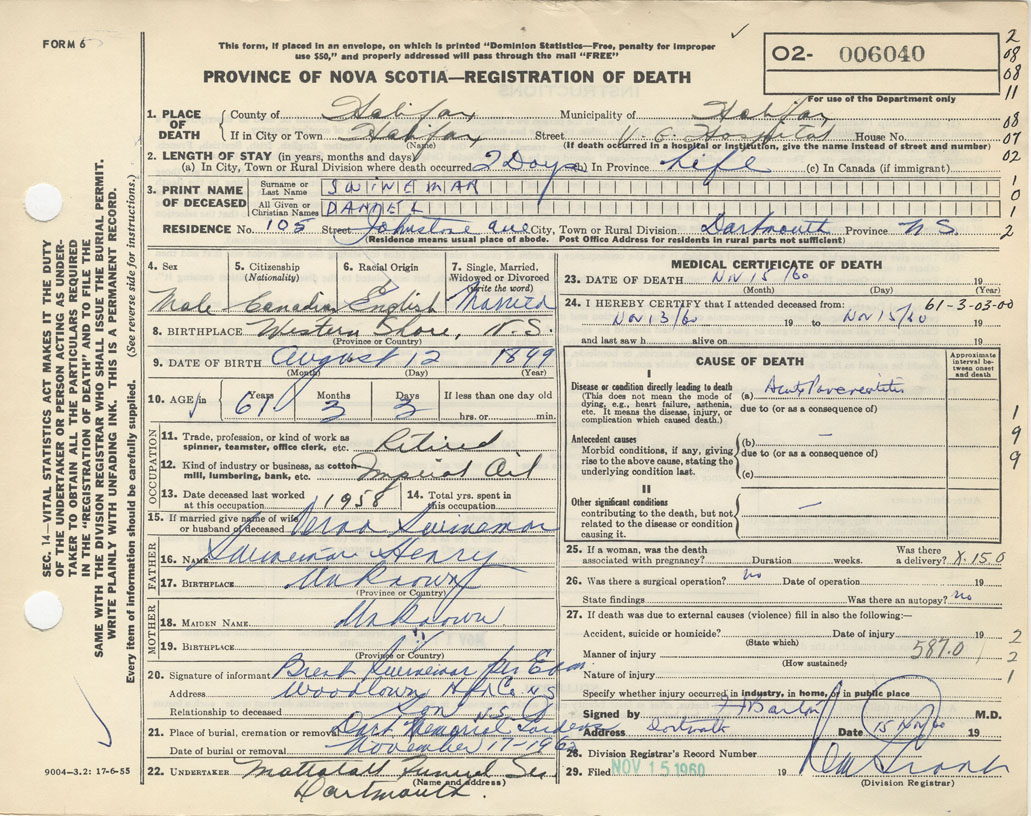 FORM 6
This form, if placed in an envelope, on which is printed "Dominion Statistics—Free, penalty for improper
use $50," and properly addressed will pass through the mail "FREE"
PROVINCE OF NOVA SCOTIA—REGISTRATION OF DEATH
O2- 006040
For use of the Department only
2
08
08
11
08
07
02
1
0
1
2
SEC. 14—VITAL STATISTICS ACT MAKES IT THE DUTY
OF THE UNDERTAKER OR PERSON ACTING AS UNDER-
TAKER TO OBTAIN ALL THE PARTICULARS REQUIRED
IN THE "REGISTRATION OF DEATH" AND TO FILE THE
SAME WITH THE DIVISION REGISTRAR WHO SHALL ISSUE THE BURIAL PERMIT.
WRITE PLAINLY WITH UNFADING INK. THIS IS A PERMANENT RECORD.
Every item of information should be carefully supplied. (See reverse side for instructions.)
1. PLACE OF DEATH County of Halifax Municipality of Halifax
If in City or Town Halifax Street V. G. Hospital House No.
(Name) (If death occurred in a hospital or institution, give the name instead of street and number)
2. LENGTH OF STAY (in years, months and days)
(a) In City, Town or Rural Division where death occurred 2 Days (b) In Province Life (c) In Canada (if immigrant)
3. PRINT NAME OF DECEASED Surname or Last Name SWINEMAR
All Given or Christian Names DANIEL
RESIDENCE No. 105 Street Johnstone Ave City, Town or Rural Division Dartmouth Province N.S.
(Residence means usual place of abode. Post Office Address for residents in rural parts not sufficient)
4. Sex 5. Citizenship (Nationality) 6. Racial Origin 7. Single, Married, Widowed or Divorced (Write the word)
Male Canadian English Married
8. BIRTHPLACE Western Shore, N.S.
(Province or Country)
9. DATE OF BIRTH August 12 1899
(Month) (Day) (Year)
10. AGE in 61 Years 3 Months 3 Days If less than one day old
hrs. or min.
OCCUPATION
11. Trade, profession, or kind of work as
spinner, teamster, office clerk, etc. Retired
12. Kind of industry or business, as cotton
mill, lumbering, bank, etc. Imperial Oil
13. Date deceased last worked at this occupation 1958 14. Total yrs. spent in this occupation
15. If married give name of wife
or husband of deceased Verna Swinemar
FATHER
16. NAME Swinemar Henry
17. BIRTHPLACE Unknown
(Province or Country)
MOTHER
18. MAIDEN NAME Unknown
19. BIRTHPLACE "
(Province or Country)
20. Signature of informant Brent Swinemar per
Address Woodlawn Hfx Co. N S
Relationship to deceased Son
21. Place of burial, cremation or removal Dart Memorial Gardens
Date of burial or removal November 17-1960
22. UNDERTAKER Mattatall Funeral Ser
(Name and address)
Dartmouth.
9004-3.2: 17-6-55
MEDICAL CERTIFICATE OF DEATH
23. DATE OF DEATH Nov 15/60 19
(Month) (Day) (Year)
24. I HEREBY CERTIFY that I attended deceased from: 61-3-03-00
Nov 13/60 19 to Nov 15/60 19
and last saw h alive on 19
CAUSE OF DEATH
Approximate interval between onset and death
I
Disease or condition directly leading to death
(This does not mean the mode of
dying, e.g., heart failure, asthenia,
etc. It means the disease, injury, or
complication which caused death.)
(a) Acute Pancreatitis
due to (or as a consequence of)
Antecedent causes
Morbid conditions, if any, giving
rise to the above cause, stating the
underlying condition last.
(b) —
due to (or as a consequence of)
(c)
II
Other significant conditions —
contributing to the death, but not
related to the disease or condition
causing it.
1
9
9
25. If a woman, was the death
associated with pregnancy? Duration weeks. Was there a delivery? X.15.0
26. Was there a surgical operation? no Date of operation 19
State findings Was there an autopsy? no
27. If death was due to external causes (violence) fill in also the following:—
Accident, suicide or homicide? Date of injury 19
(State which)
Manner of injury 587.0
(How sustained)
Nature of injury
Specify whether injury occurred in industry, in home, or in public place
2
2
1
Signed by Barton M.D.
Address Dartmouth Date 15 Nov 60 19
28. Division Registrar's Record Number
29. Filed NOV 15 1960 19
(Division Registrar)